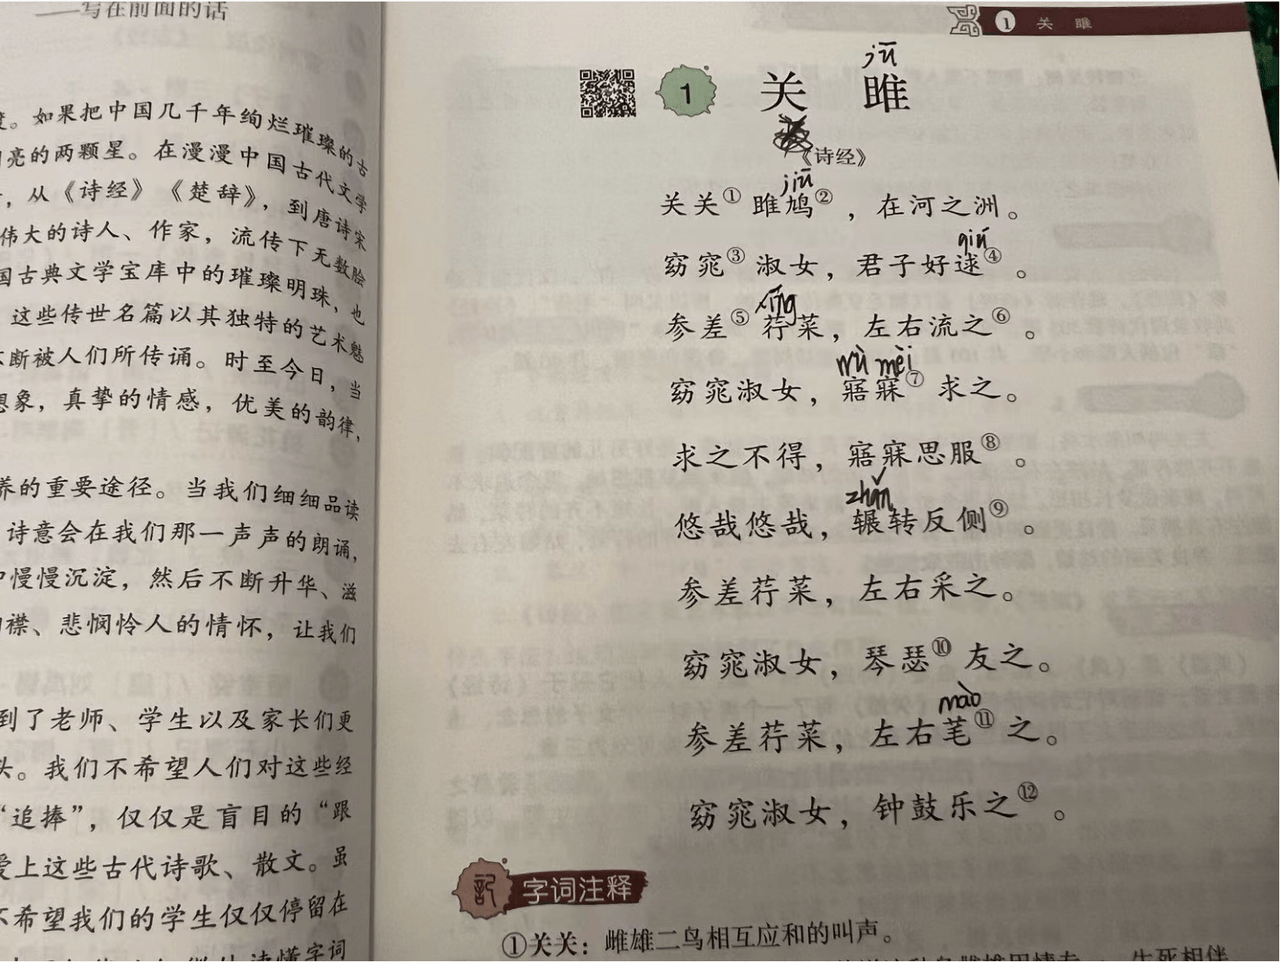 ——写在前面的话
度。如果把中国几千年绚烂璀璨的古
亮的两颗星。在漫漫中国古代文学
，从《诗经》《楚辞》，到唐诗宋
伟大的诗人、作家，流传下无数脍
国古典文学宝库中的璀璨明珠，也
这些传世名篇以其独特的艺术魅
不断被人们所传诵。时至今日，当
想象，真挚的情感，优美的韵律，
养的重要途径。当我们细细品读
诗意会在我们那一声声的朗诵，
中慢慢沉淀，然后不断升华、滋
襟、悲悯怜人的情怀，让我们
到了老师、学生以及家长们更
头。我们不希望人们对这些经
“追捧”，仅仅是盲目的“跟
爱上这些古代诗歌、散文。虽
不希望我们的学生仅仅停留在
读懂字词
1 关 雎
jū
1 关 雎
《诗经》
jiū
关关① 雎鸠②，在河之洲。
qiú
窈窕③ 淑女，君子好逑④。
xìng
参差⑤ 荇菜，左右流之⑥。
wù mèi
窈窕淑女，寤寐⑦ 求之。
求之不得，寤寐思服⑧。
zhǎn
悠哉悠哉，辗转反侧⑨。
参差荇菜，左右采之。
窈窕淑女，琴瑟⑩ 友之。
mào
参差荇菜，左右芼⑪ 之。
窈窕淑女，钟鼓乐之⑫。
記 字词注释
①关关：雌雄二鸟相互应和的叫声。
生死相伴